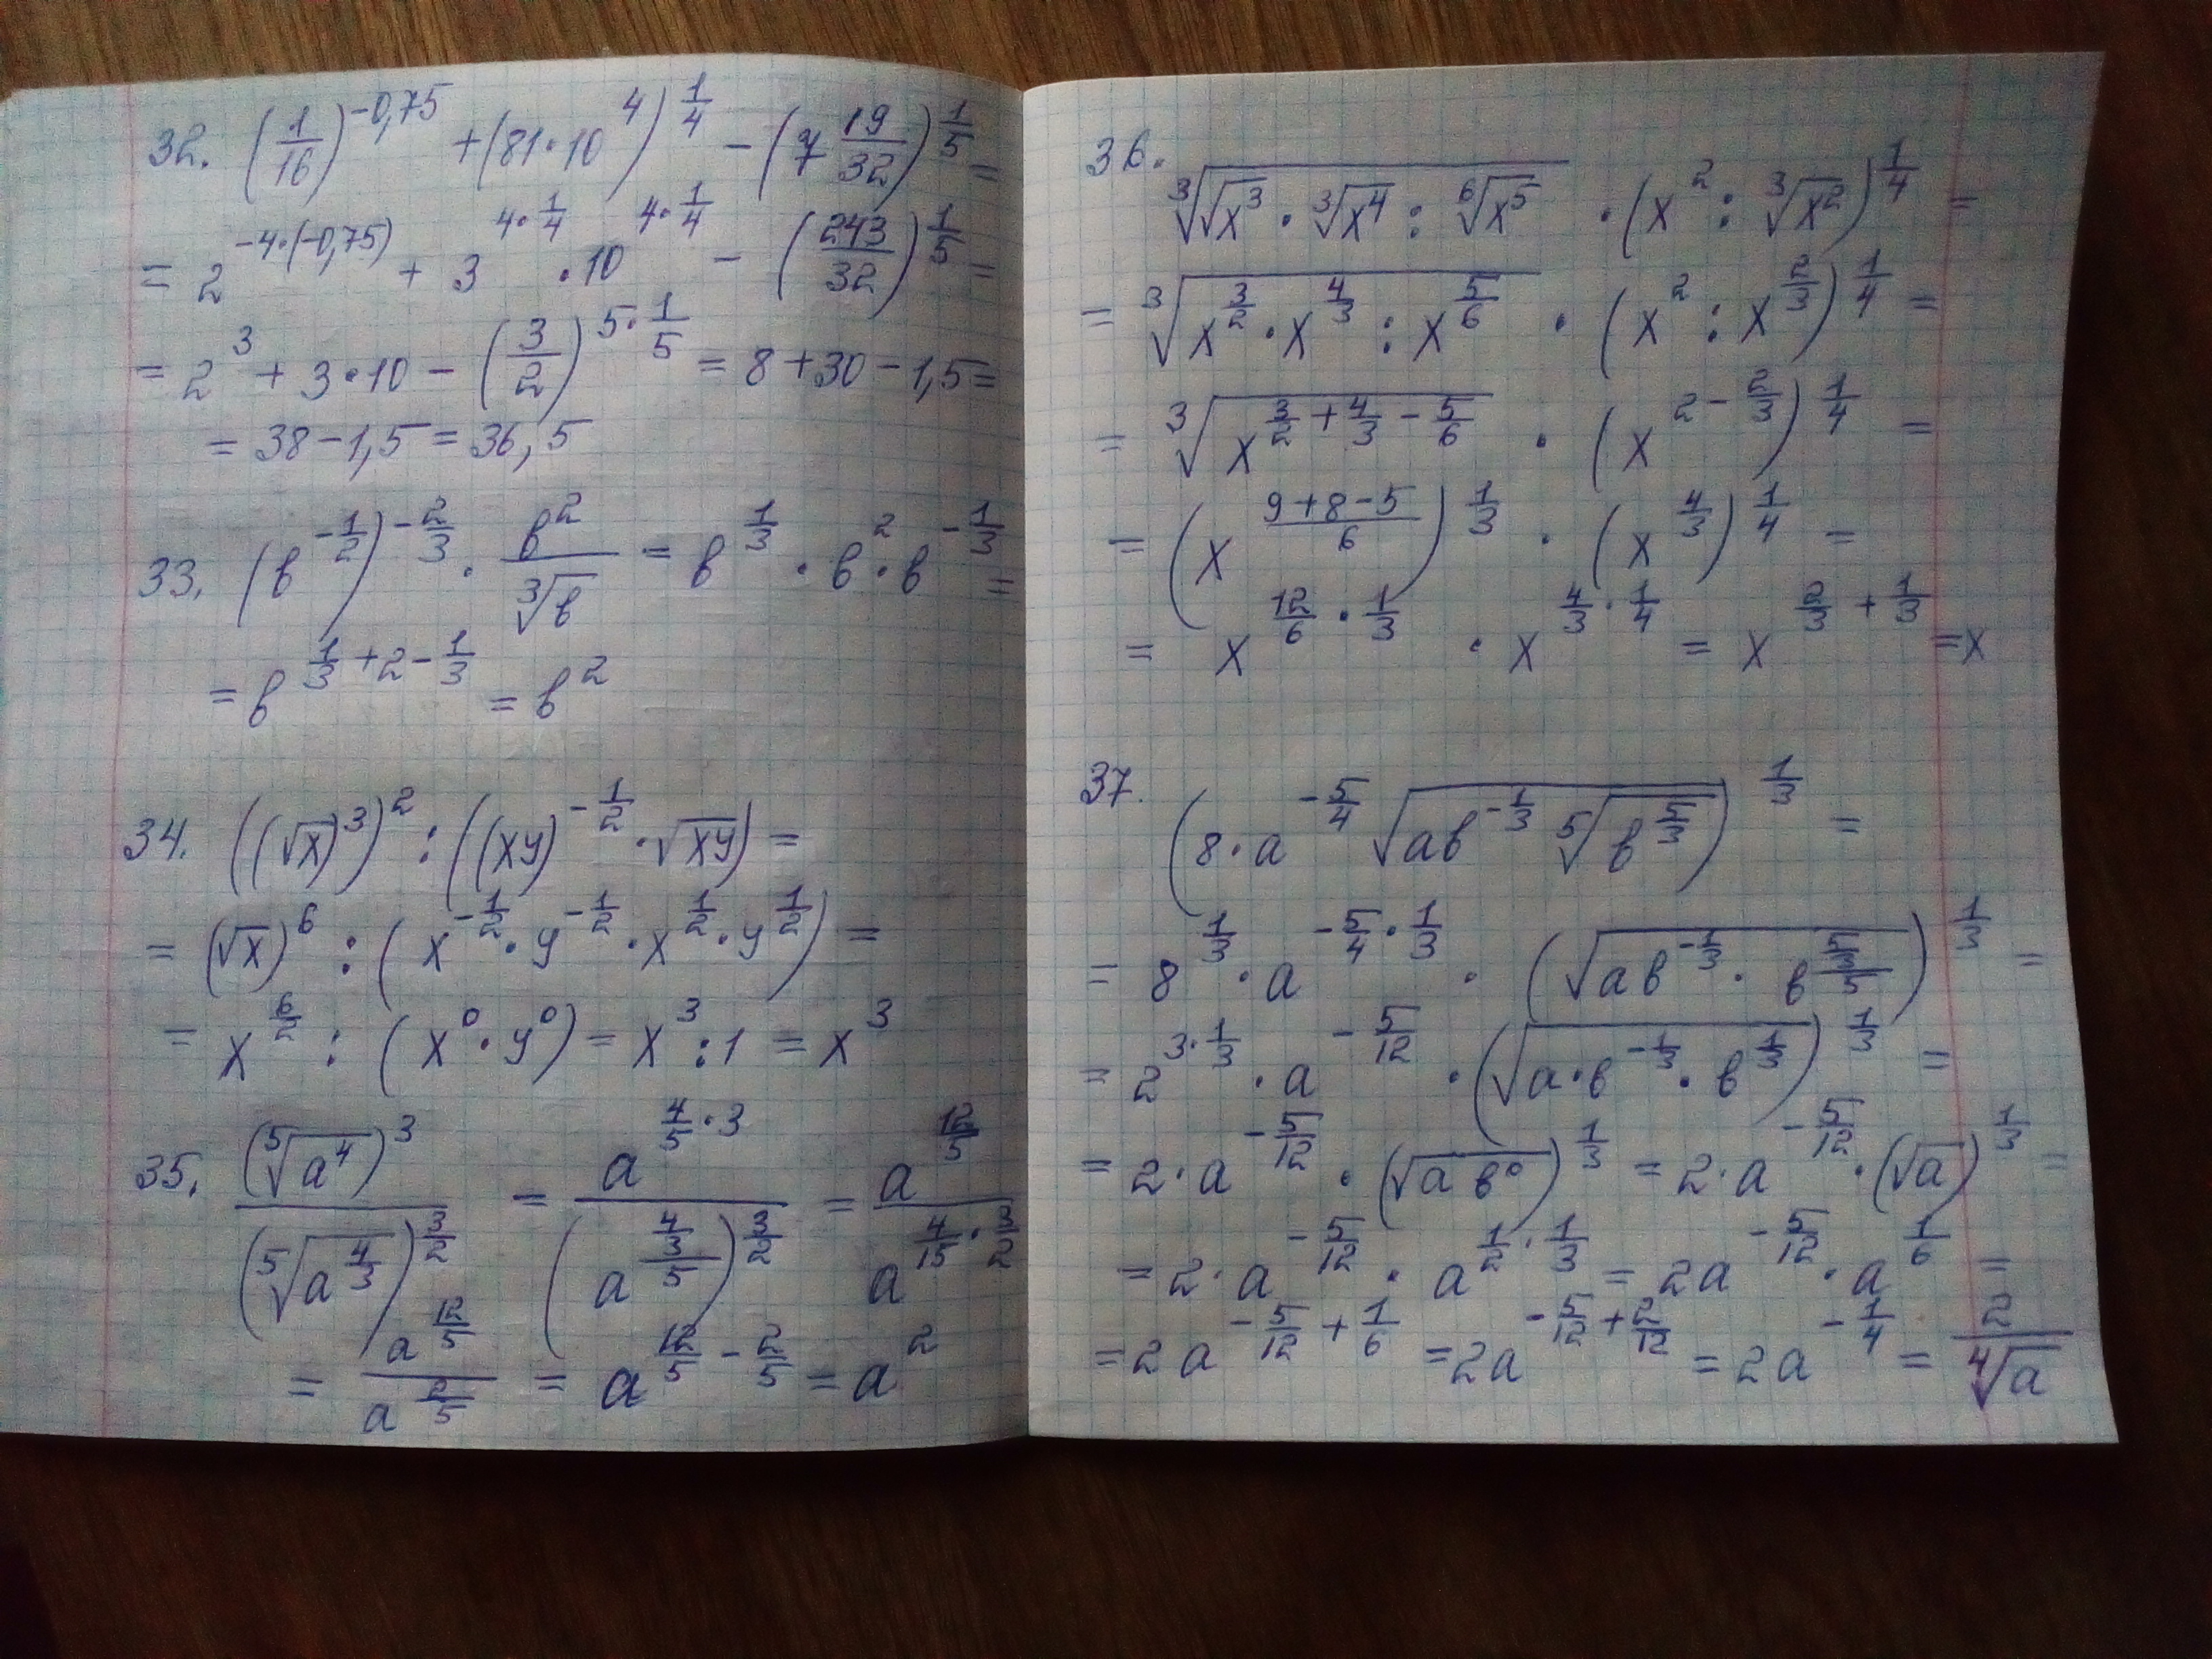 32. (1/16)^(-0,75) + (81·10^4)^(1/4) - (7 19/32)^(1/5) =
= 2^(-4·(-0,75)) + 3^(4·1/4) · 10^(4·1/4) - (243/32)^(1/5) =
= 2^3 + 3·10 - (3/2)^(5·1/5) = 8 + 30 - 1,5 =
= 38 - 1,5 = 36,5
33. (в^(-1/2))^(-2/3) · в^2/∛в = в^(1/3) · в^2 · в^(-1/3) =
= в^(1/3 + 2 - 1/3) = в^2
34. ((√x)^3)^2 : ((xy)^(-1/2) · √(xy)) =
= (√x)^6 : (x^(-1/2) · y^(-1/2) · x^(1/2) · y^(1/2)) =
= x^(6/2) : (x^0 · y^0) = x^3 : 1 = x^3
35. (⁵√(a^4))^3 / (⁵√(a^(4/3)))^(3/2) = a^(4/5·3) / (a^((4/3)/5))^(3/2) = a^(12/5) / a^(4/15·3/2)
= a^(12/5) / a^(2/5) = a^(12/5 - 2/5) = a^2
36.
∛(√(x^3) · ∛(x^4) : ⁶√(x^5)) · (x^2 : ∛(x^2))^(1/4) =
= ∛(x^(3/2) · x^(4/3) : x^(5/6)) · (x^2 : x^(2/3))^(1/4) =
= ∛(x^(3/2 + 4/3 - 5/6)) · (x^(2 - 2/3))^(1/4) =
= (x^((9+8-5)/6))^(1/3) · (x^(4/3))^(1/4) =
= x^(12/6 · 1/3) · x^(4/3 · 1/4) = x^(2/3 + 1/3) = x
37. (8·a^(-5/4) √(aв^(-1/3) ⁵√(в^(5/3))))^(1/3) =
= 8^(1/3) · a^(-5/4 · 1/3) · (√(aв^(-1/3) · в^((5/3)/5)))^(1/3) =
= 2^(3·1/3) · a^(-5/12) · (√(a·в^(-1/3) · в^(1/3)))^(1/3) =
= 2·a^(-5/12) · (√(a в^0))^(1/3) = 2·a^(-5/12) · (√a)^(1/3) =
= 2·a^(-5/12) · a^(1/2 · 1/3) = 2a^(-5/12) · a^(1/6) =
= 2a^(-5/12 + 1/6) = 2a^(-5/12 + 2/12) = 2a^(-1/4) = 2/⁴√a